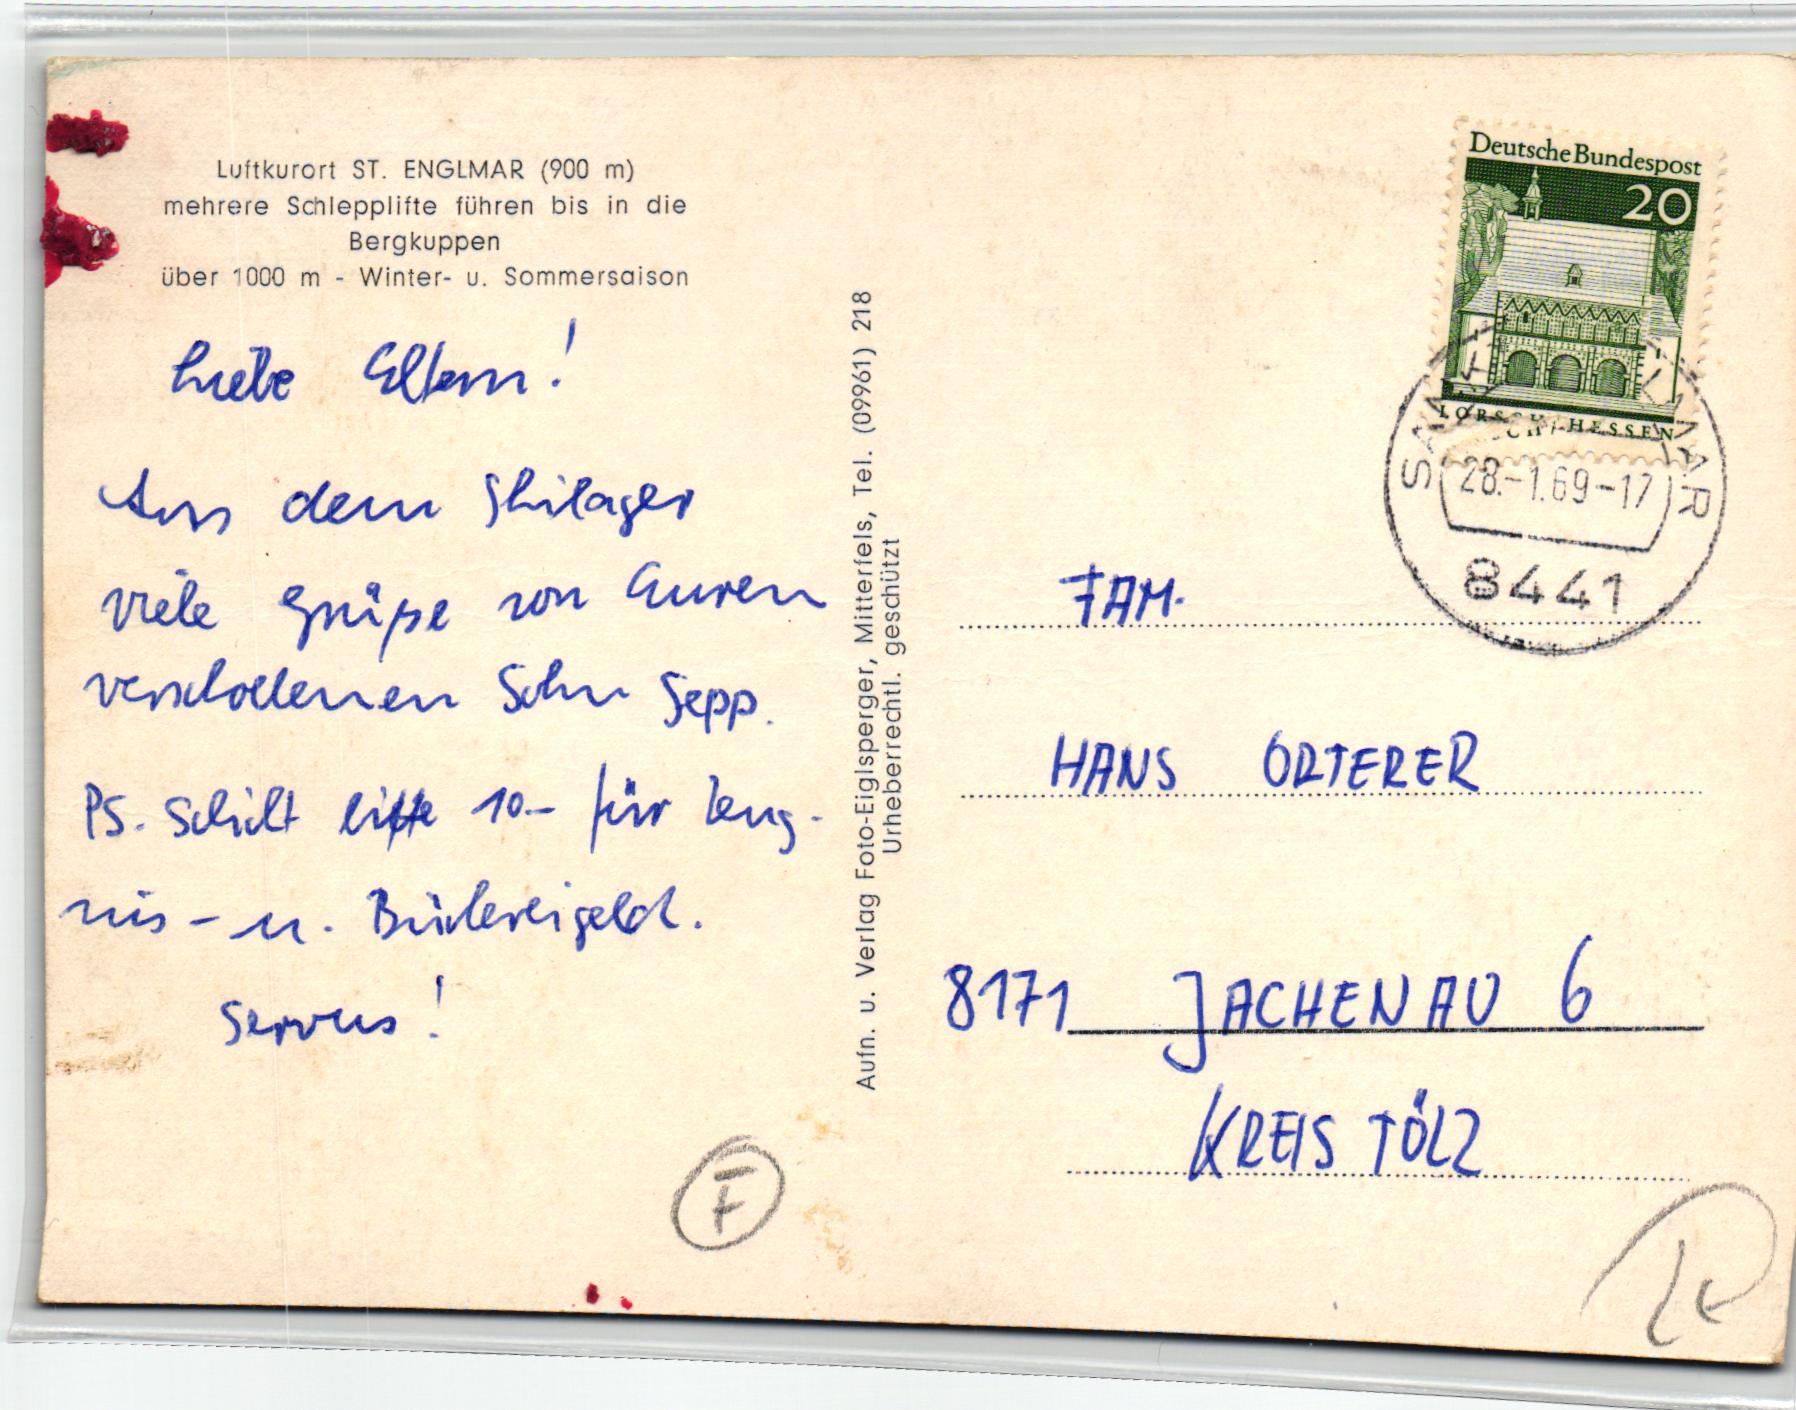 Luftkurort ST. ENGLMAR (900 m)
mehrere Schlepplifte führen bis in die
Bergkuppen
über 1000 m - Winter- u. Sommersaison
Liebe Eltern!
Aus dem Skilager
viele Grüße von Eurem
verschollenen Sohn Sepp.
PS. Schickt bitte 10.- für Zeug-
nis- u. Büchereigeld.
Servus!
F
Aufn. u. Verlag Foto-Eiglsperger, Mitterfels, Tel. (09961) 218
Urheberrechtl. geschützt
Deutsche Bundespost
20
LORSCH/HESSEN
28.-1.69-17
8441
FAM.
HANS ORTERER
8171 JACHENAU 6
KREIS TÖLZ